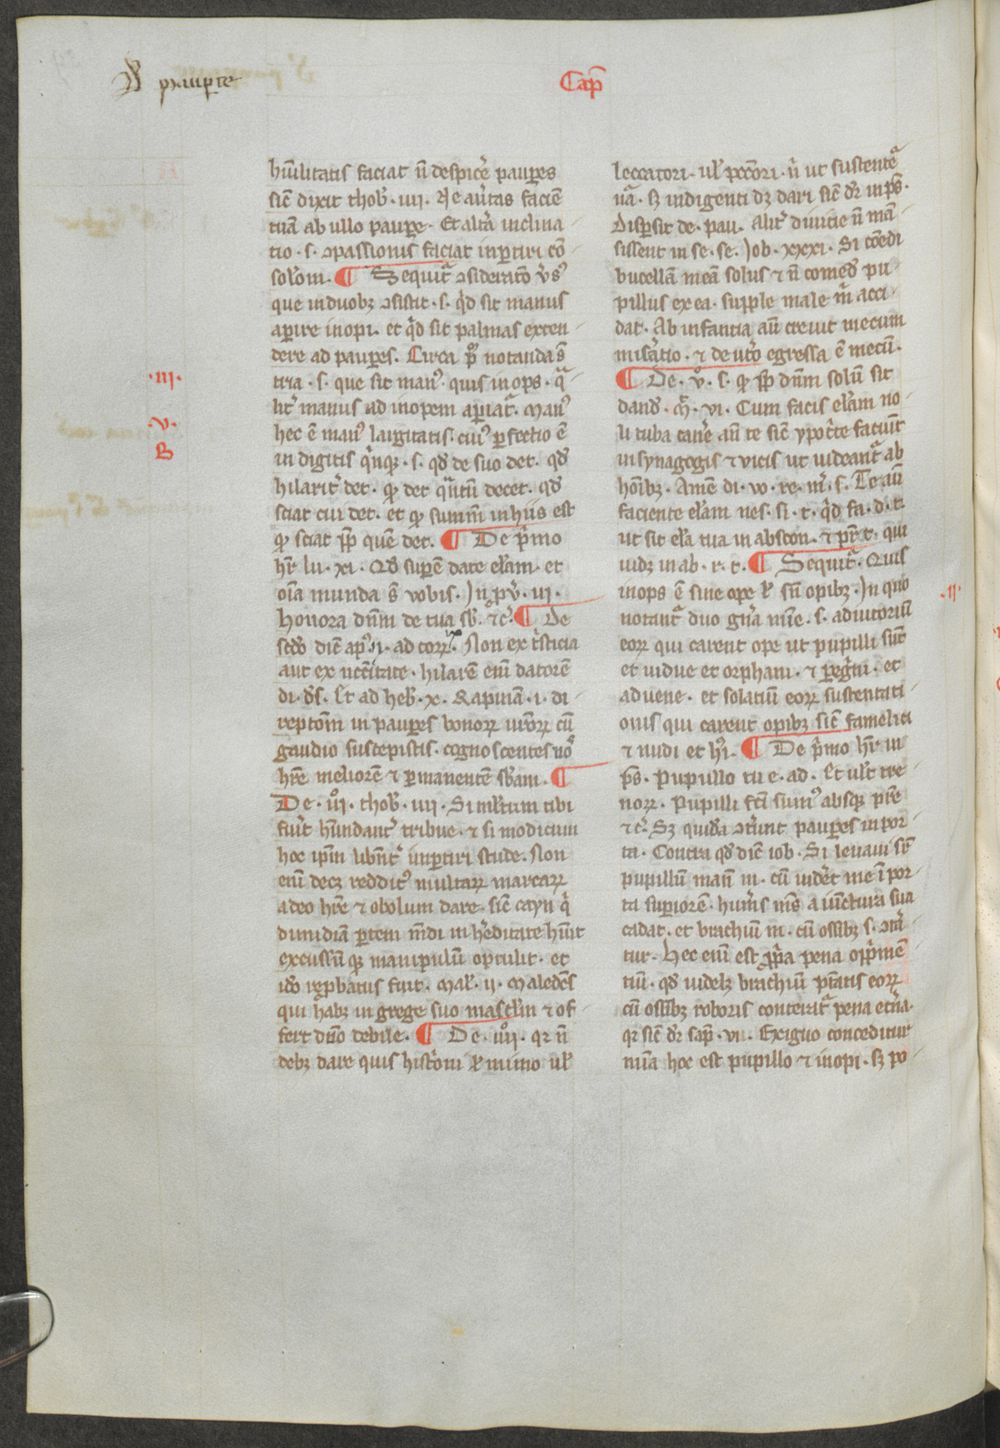 Cap̄
hūilitatis faciat ñ despic̄e paup̱es
sic̄ dixit thob̄ · iiii · Ne au̾tas facie᷒
tuā ab ullo paup̱e · Et alt̾a inclina
tio · s · ꝯpassionis faciat inp̱tiri cō
solom̄ · ¶ Sequit̾ ꝯsideratō v̾s᷒
que in duobꝫ ꝯsistit · s · qͥd sit manus
ap̱ire inopi · et qͥd sit palmas exten
dere ad paup̱es · Circa pͫ notanda s̄
tria · s · que sit man᷒ · quis inops · qͣ
lit̾ manus ad inopem ap̱iat̾ · Man᷒
hec ē man᷒ largitatis · cui᷒ p̱fectio ē
in digitis qͥnqꝫ · s · qđ de suo det · qđ
hilarit̾ det · qđ det qͣntū decet · qđ
sciat cui det · et qđ sum̄m in hiis est
qđ sciat pp̄ quē det · ¶ De pͥmo
hr̄ lu · xi · Qđ sup̱ē date elām · et
oīa munda s̄ vobis · In pv̾ · iii ·
honora dn̄m de tua sb̄ · ⁊c̾ · ¶ De
scđo dic̄ ap᷒ · ii · ad corꝝ · Non ex tͥsticia
aut ex nc̄citate · hilarē enī datorē
di · ds̄ · Et ad heb̄ · x · Rapinā · i · di
reptōm in paup̱es bonorꝝ v̄rorꝝ cū
gaudio suscepistis · cognoscentes uͦ
hr̄e meliorē ⁊ p̱manentē sb̄am · ¶
De · iiiͦ · thob̄ · iiii · Si m̄ltum tibi
fuit̾ hūndant̾ tribue · ⁊ si modicum
hoc ip̄m libn̄t̾ inp̱tiri stude · Non
enī decꝫ reddit᷒ multarꝝ marcarꝝ
adeo hr̄e ⁊ obolum dare · sic̄ cayn qͥ
dimidiā p̱tem m̄di in h̾editate h̄uit
excussūqꝫ manipulū optulit · et
idō rep̱batus fuit · Mal̄ · ii · Maled̄s
qui habꝫ in grege suo masc̄lin ⁊ of
fert dn̄o debile · ¶ De · iiiiͦ · qr ñ
debꝫ dare quis histͥoni ł mimo ul̄
leccatori · ul̄ pc̄cori · ñ ut sustentet̾
nā · sꝫ indigenti dꝫ dari sic̄ dr̄ in ps̄ ·
Disp̱sit de · pau · Alit̾ diuicie ñ man̄
sissent in se · se · Job · xxxi · Si cōedi
bucellā meā solus ⁊ ñ comed̄ pu
pillus ex ea · supple male m̄ acci
dat · Ab infantia aū creuit mecum
mis̾atio · ⁊ de ut̾o egressa ē mecū ·
¶ De · vͦ · s · qđ pp̄ dn̄m solū sit
dand̄ · M̄ · vi · Cum facis elām no
li tuba can̾e añ te sic̄ ypoc̄te faciūt
in synagogis ⁊ vicis ut uideant̾ ab
hōibꝫ · Amē di · vo · re · m̄ · s · Te aū
faciente elām nes · si · t · qͥd fa · d · t ·
ut sit ela tua in abscon · ⁊ pr̄ t · qui
uidꝫ in ab · r · t · ¶ Sequit̾ · Quis
inops ē sine ope ł sn̄ opibꝫ · In quo
notant̾ duo gn̾a mīe · s · adiutoriū
eorꝝ qui carent ope ut pupilli sūt
et uidue et orphani · ⁊ p̱eg̾ni · et
aduene · et solatiū eorꝝ sustentati
onis qui carent opibꝫ sic̄ famelici
⁊ nudi et hͥ · ¶ De pͥmo hr̄ in
ps̄ · Pupillo tu e · ad · Et ult̾ tre
norꝝ · Pupilli fc̄i sum᷒ absqꝫ pr̄e
⁊c̾ · Sꝫ quidā ꝯt̾unt paup̱es in por
ta · Contra qđ dic̄ iob · Si leuaui sr̄
pupillū manū m · cū uid̾et me ī por
ta sup̱iorē · hum̾s m̄s a iūctura sua
cadat · et brachiū m · cū ossibꝫ s · ꝯt̾a
tur · Hec enī est p̱p̱a pena opp̱mē
tiū · qđ uidelꝫ brachiū p̄tatis eorꝝ
cū ossibꝫ roboris conterat̾ pena et̾na ·
qr sic̄ dr̄ sap̄ · vii · Exiguo conceditur
mīa hoc est pupillo ⁊ inopi · sꝫ po
· iii ·
· v ·
B
· ii ·